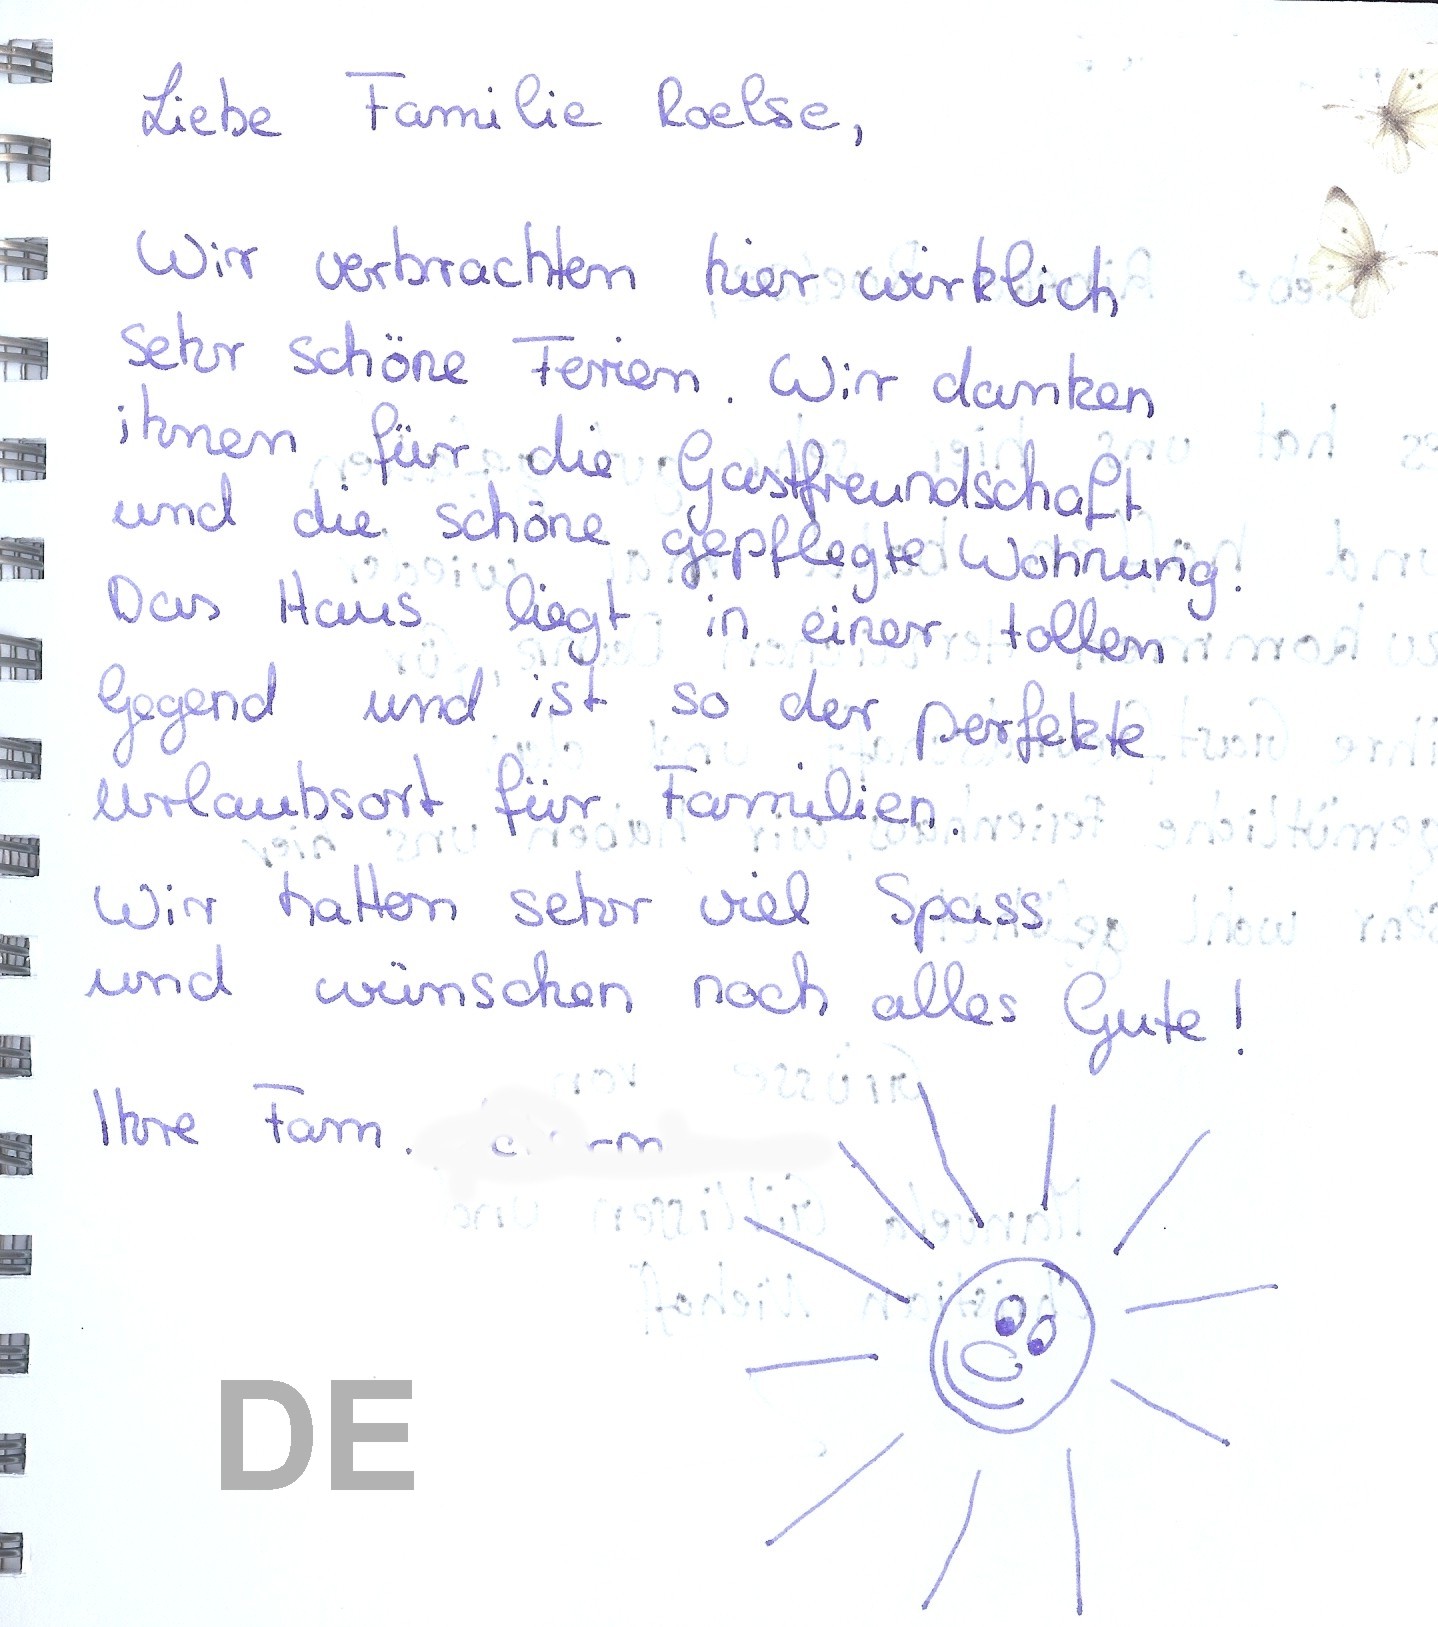 Liebe Familie Roelse,
Wir verbrachten hier wirklich
sehr schöne Ferien. Wir danken
ihnen für die Gastfreundschaft
und die schöne gepflegte Wohnung.
Das Haus liegt in einer tollen
Gegend und ist so der perfekte
Urlaubsort für Familien.
Wir hatten sehr viel Spass
und wünschen noch alles Gute!
Ihre Fam.
DE